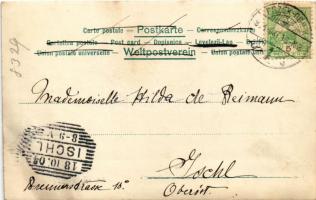 Carte postale Postkarte Correspondenzkarte
Cartolina postale — Post card — Dopisnica — Levelező-Lap
Union postale universelle Weltpostverein Union postale
8329
Mademoiselle Hilda de Reimann
Ischl
Oberöst.
Bremerstrasse 18
ISCHL
18.10.04
8-9.V